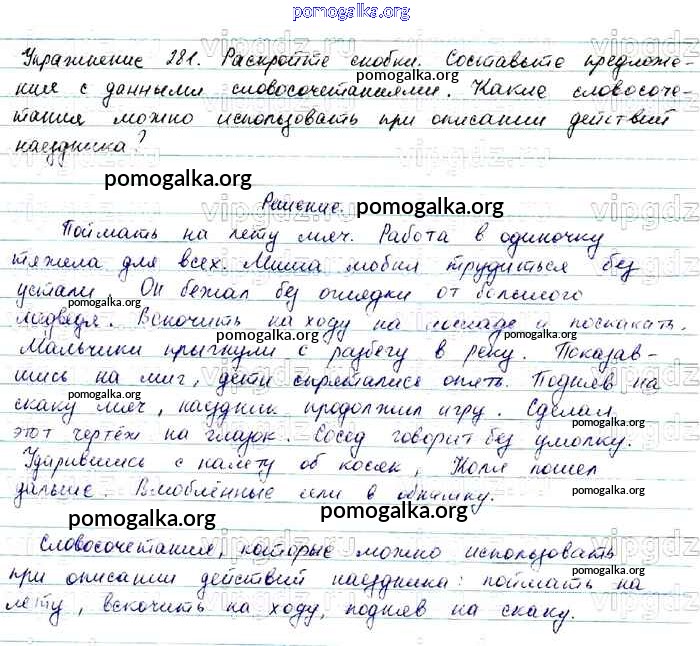 pomogalka.org
Упражнение 281. Раскройте скобки. Составьте предложе-
ния с данными словосочетаниями. Какие словосоче-
тания можно использовать при описании действий
наездника?
pomogalka.org
pomogalka.org
Решение. pomogalka.org
Поймать на лету мяч. Работа в одиночку
тяжела для всех. Миша любил трудиться без
устали. Он бежал без оглядки от большого
pomogalka.org
медведя. Вскочить на ходу на лошадь и поскакать.
pomogalka.org
Мальчики прыгнули с разбегу в реку. Показав-
шись на миг, дети спрятались опять. Подняв на
pomogalka.org
скаку мяч, наездник продолжил игру. Сделал
pomogalka.org
этот чертёж на глазок. Сосед говорит без умолку.
Ударившись с налёту об косяк, Коля пошел
pomogalka.org
дальше. Влюблённые шли в обнимку.
pomogalka.org
pomogalka.org
pomogalka.org
Словосочетания, которые можно использовать
при описании действий наездника: поймать на
pomogalka.org
лету, вскочить на ходу, подняв на скаку.